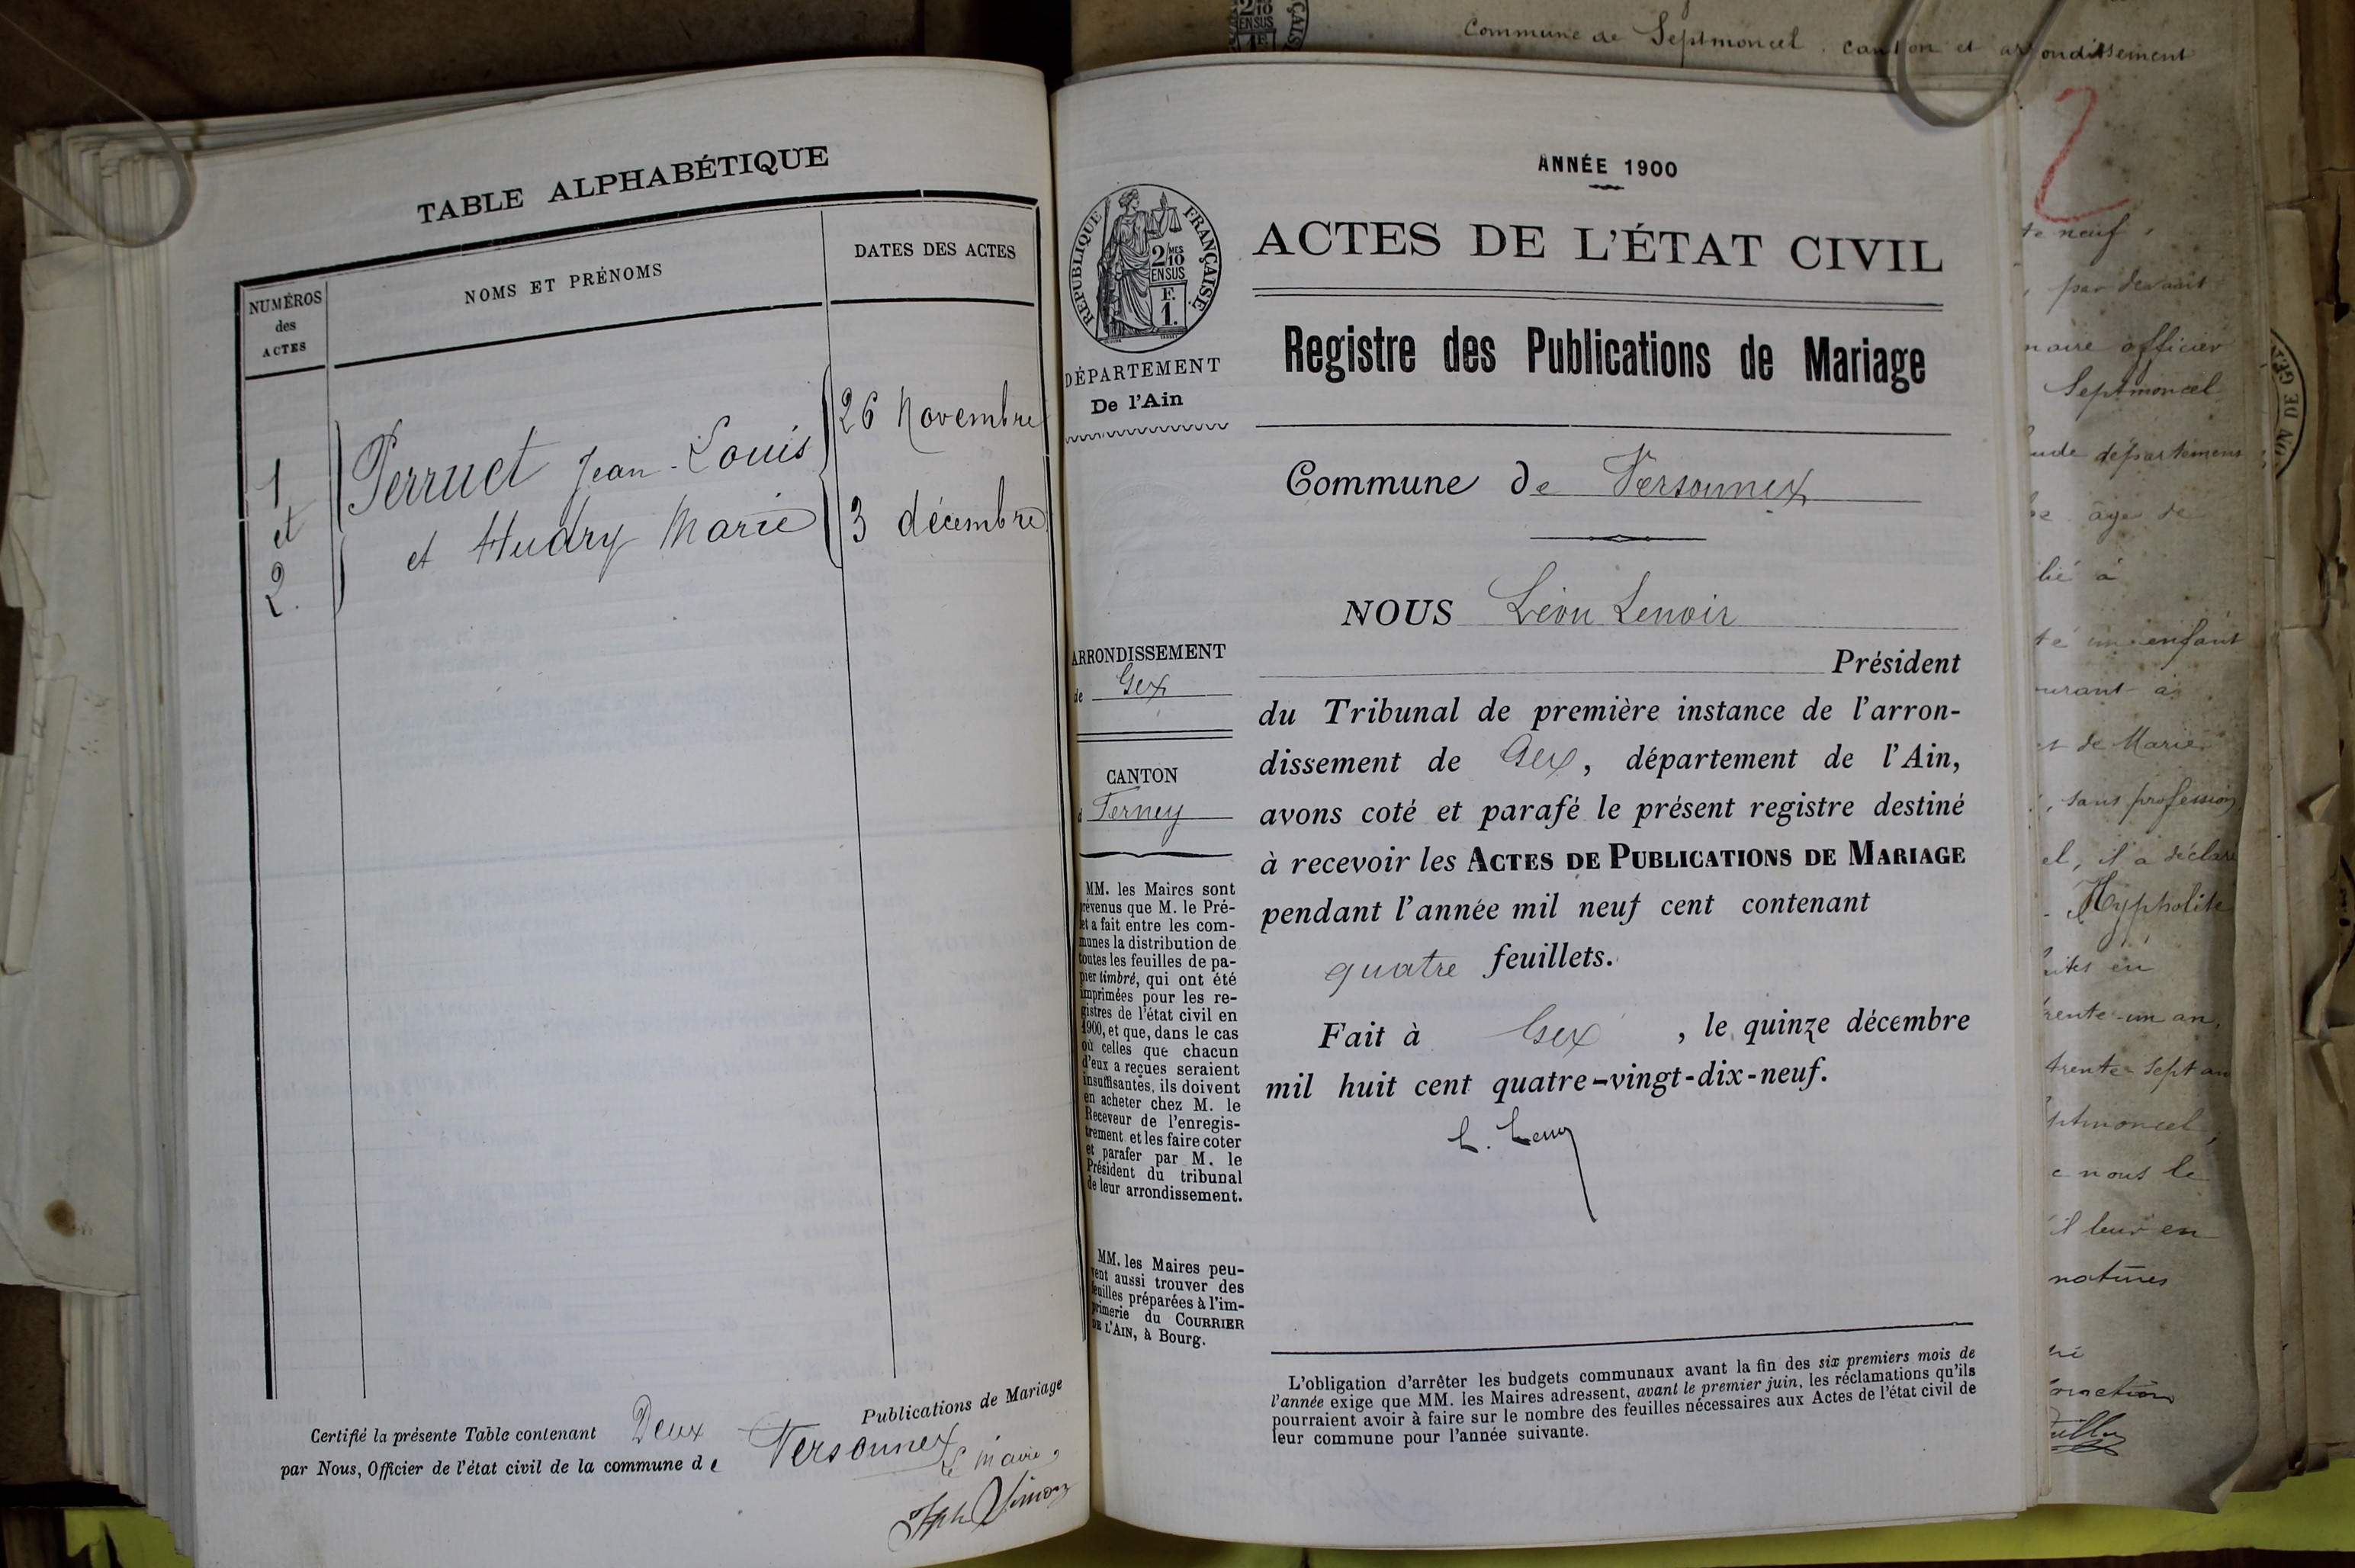 Commune de Septmoncel, canton et arrondissement
TABLE ALPHABÉTIQUE
NUMÉROS
des
ACTES
NOMS ET PRÉNOMS
DATES DES ACTES
1
et
2.
Perruet Jean-Louis
et Hudry Marie
26 Novembre
3 décembre
Publications de Mariage
Certifié la présente Table contenant Deux
par Nous, Officier de l'état civil de la commune de Versonnex
Le Maire,
ANNÉE 1900
RÉPUBLIQUE FRANÇAISE
2/10
MES
EN SUS
F.
1.
DÉPARTEMENT
De l'Ain
ARRONDISSEMENT
de Gex
CANTON
Ferney
MM. les Maires sont
prévenus que M. le Pré-
et a fait entre les com-
munes la distribution de
toutes les feuilles de pa-
pier timbré, qui ont été
imprimées pour les re-
gistres de l'état civil en
1900, et que, dans le cas
où celles que chacun
d'eux a reçues seraient
insuffisantes, ils doivent
en acheter chez M. le
Receveur de l'enregis-
trement et les faire coter
et parafer par M. le
Président du tribunal
de leur arrondissement.
MM. les Maires peu-
vent aussi trouver des
feuilles préparées à l'im-
primerie du COURRIER
DE L'AIN, à Bourg.
ACTES DE L'ÉTAT CIVIL
Registre des Publications de Mariage
Commune de Versonnex
NOUS Léon Lenoir
Président
du Tribunal de première instance de l'arron-
dissement de Gex, département de l'Ain,
avons coté et parafé le présent registre destiné
à recevoir les ACTES DE PUBLICATIONS DE MARIAGE
pendant l'année mil neuf cent contenant
quatre feuillets.
Fait à Gex, le quinze décembre
mil huit cent quatre-vingt-dix-neuf.
L'obligation d'arrêter les budgets communaux avant la fin des six premiers mois de
l'année exige que MM. les Maires adressent, avant le premier juin, les réclamations qu'ils
pourraient avoir à faire sur le nombre des feuilles nécessaires aux Actes de l'état civil de
leur commune pour l'année suivante.
2
neuf,
par devant
officier
Septmoncel
département
âgé de
à
enfant
à
de Marie
, sans profession,
el, il a déclaré
Hyppolite
en
un an,
trente-sept an
nous le
il leur en